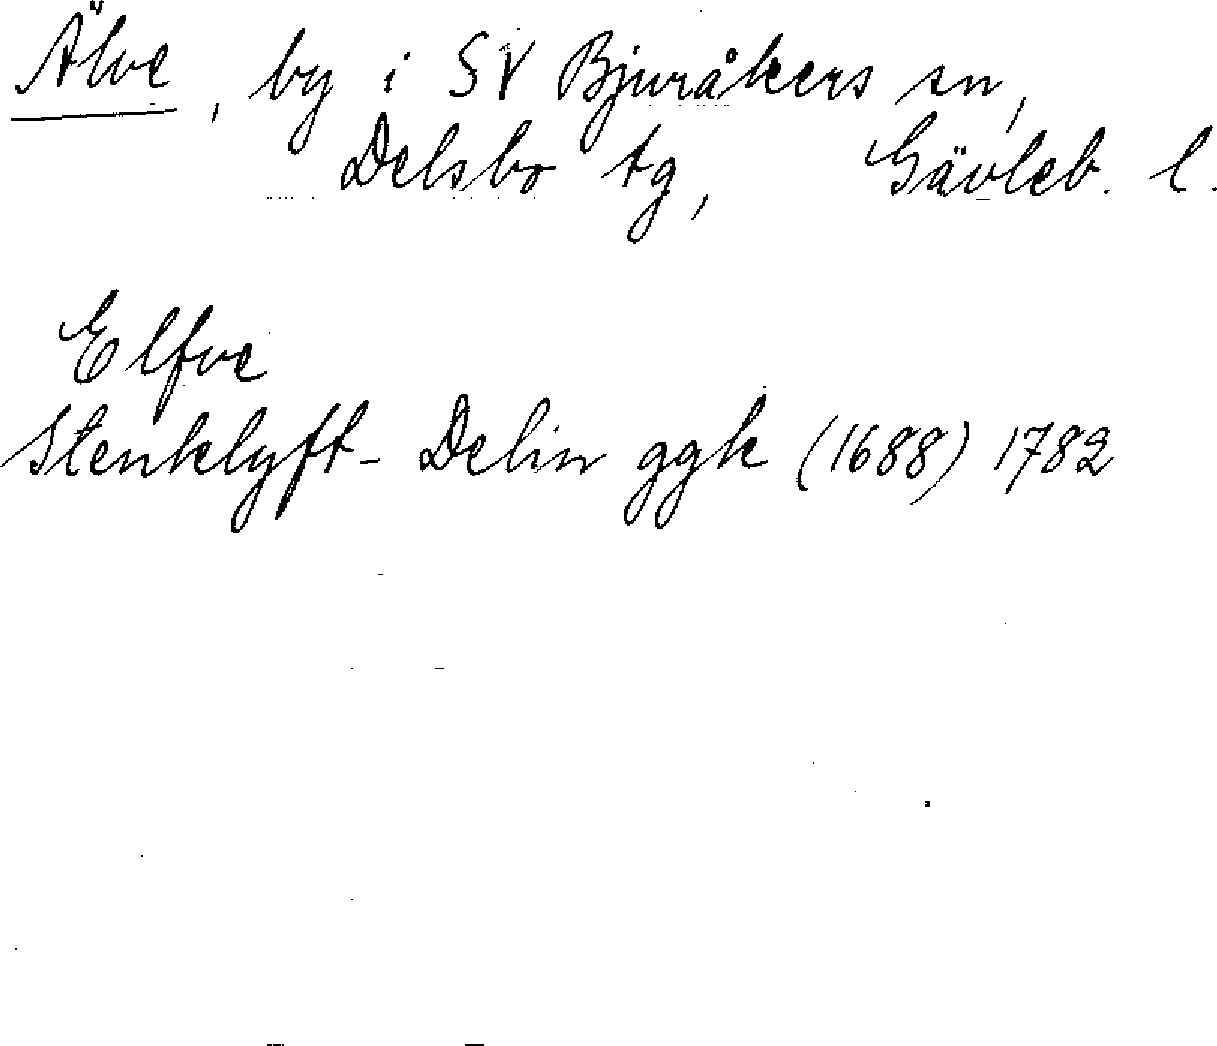 Älve, by i SV Bjuråkers sn,
Delsbo tg, Gävleb. l.
Elfve
Stenklyft - Delin ggk (1688) 1782